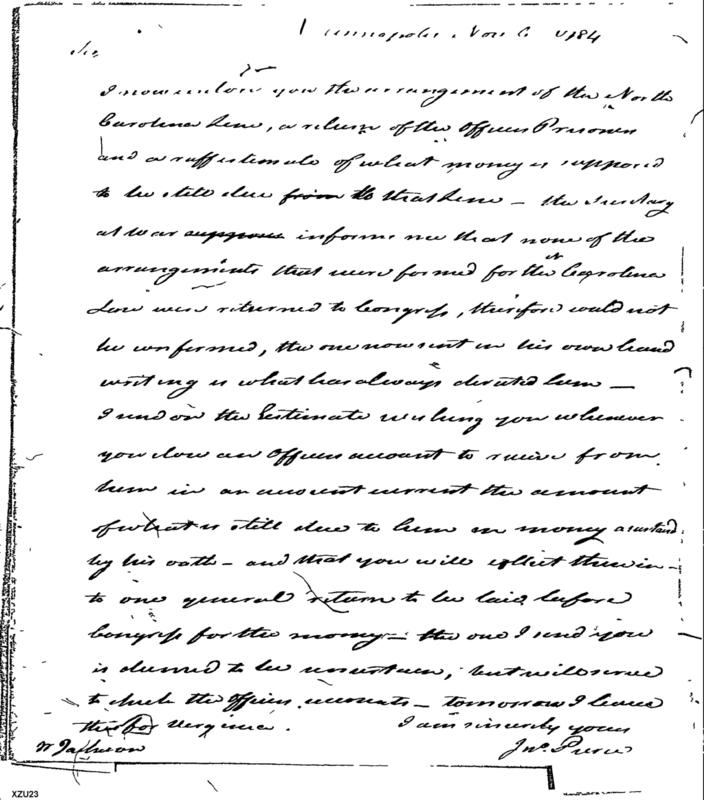 Annapolis Nov 6 1784
Sir,
I now inclose you the arrangement of the North
Carolina Line, a return of the Officers Prisoners
and a ruff estimate of what money is supposed
to be still due from to that Line — the Secretary
at war suppose informs me that none of the
arrangements that were formed for the N Carolina
Line were returned to Congress, therefore could not
be confirmed, the one now sent in his own hand
writing is what has always directed him —
I send on the Estimate wishing you whenever
you close an Officers account to receive from
him in an account current the amount
of what is still due to him in money ascertaind
by his oath — and that you will collect them in-
to one general return to be laid before
Congress for the money — the one I send you
is deemed to be uncertain, but will serve
to check the officers accounts — tomorrow I leave
this for Verginia. I am sincerely yours
Jno. Pierce
XZU23